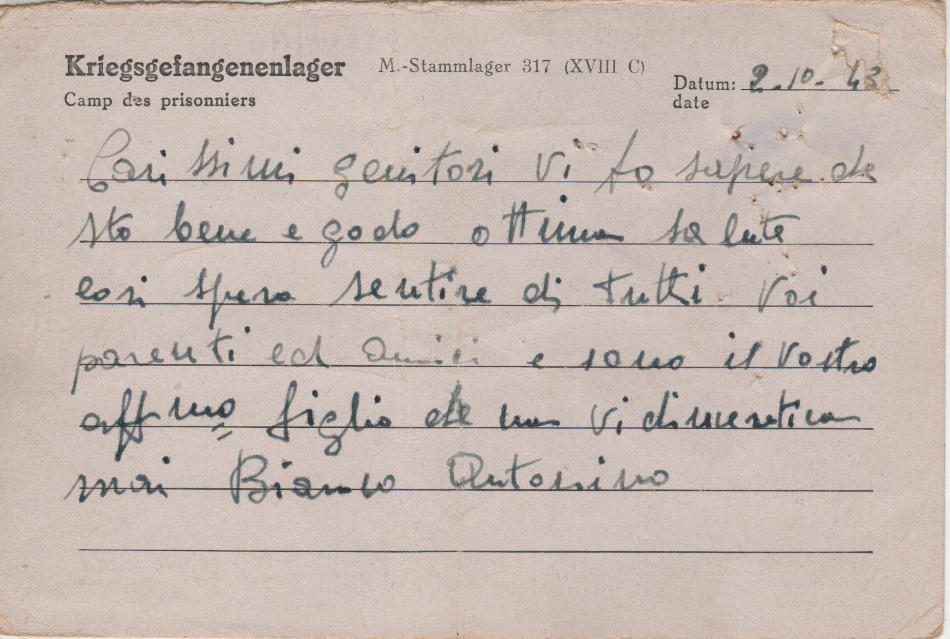 Kriegsgefangenenlager M.-Stammlager 317 (XVIII C) Datum: 2.-10-43
Camp des prisonniers date
Carissimi genitori vi fo sapere che
sto bene e godo ottima salute
cosi spero sentire di tutti voi
parenti ed amici e sono il vostro
affmo figlio che non vi dimentica
mai Bianco Antonino